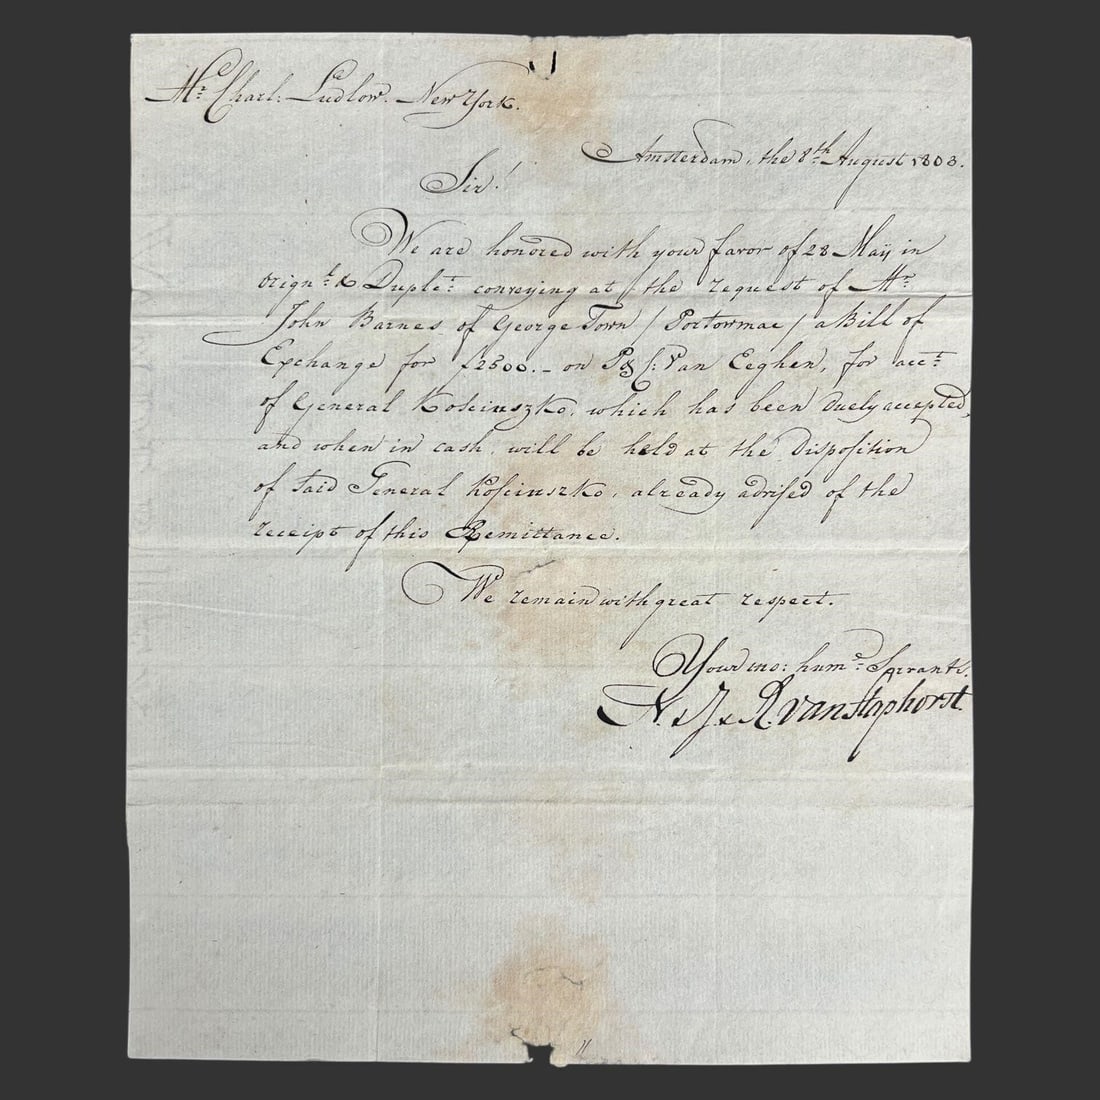 Mr. Charl: Ludlow. New York.
Amsterdam, the 8th. August 1803.
Sir!
We are honored with your favor of 28 Maÿ in
orignl. & Duplct. conveying at the request of Mr.
John Barnes of George Town / Portowmac / a Bill of
Exchange for ƒ2500.- on P & C: Van Eeghen, for acct.
of General Kosciuszko, which has been duely accepted,
and when in cash, will be held at the Disposition
of said General Kosciuszko, already advised of the
receipt of this Remittance.
We remain with great respect.
Your mo: humle. Servants.
N. & J. & R. van Staphorst